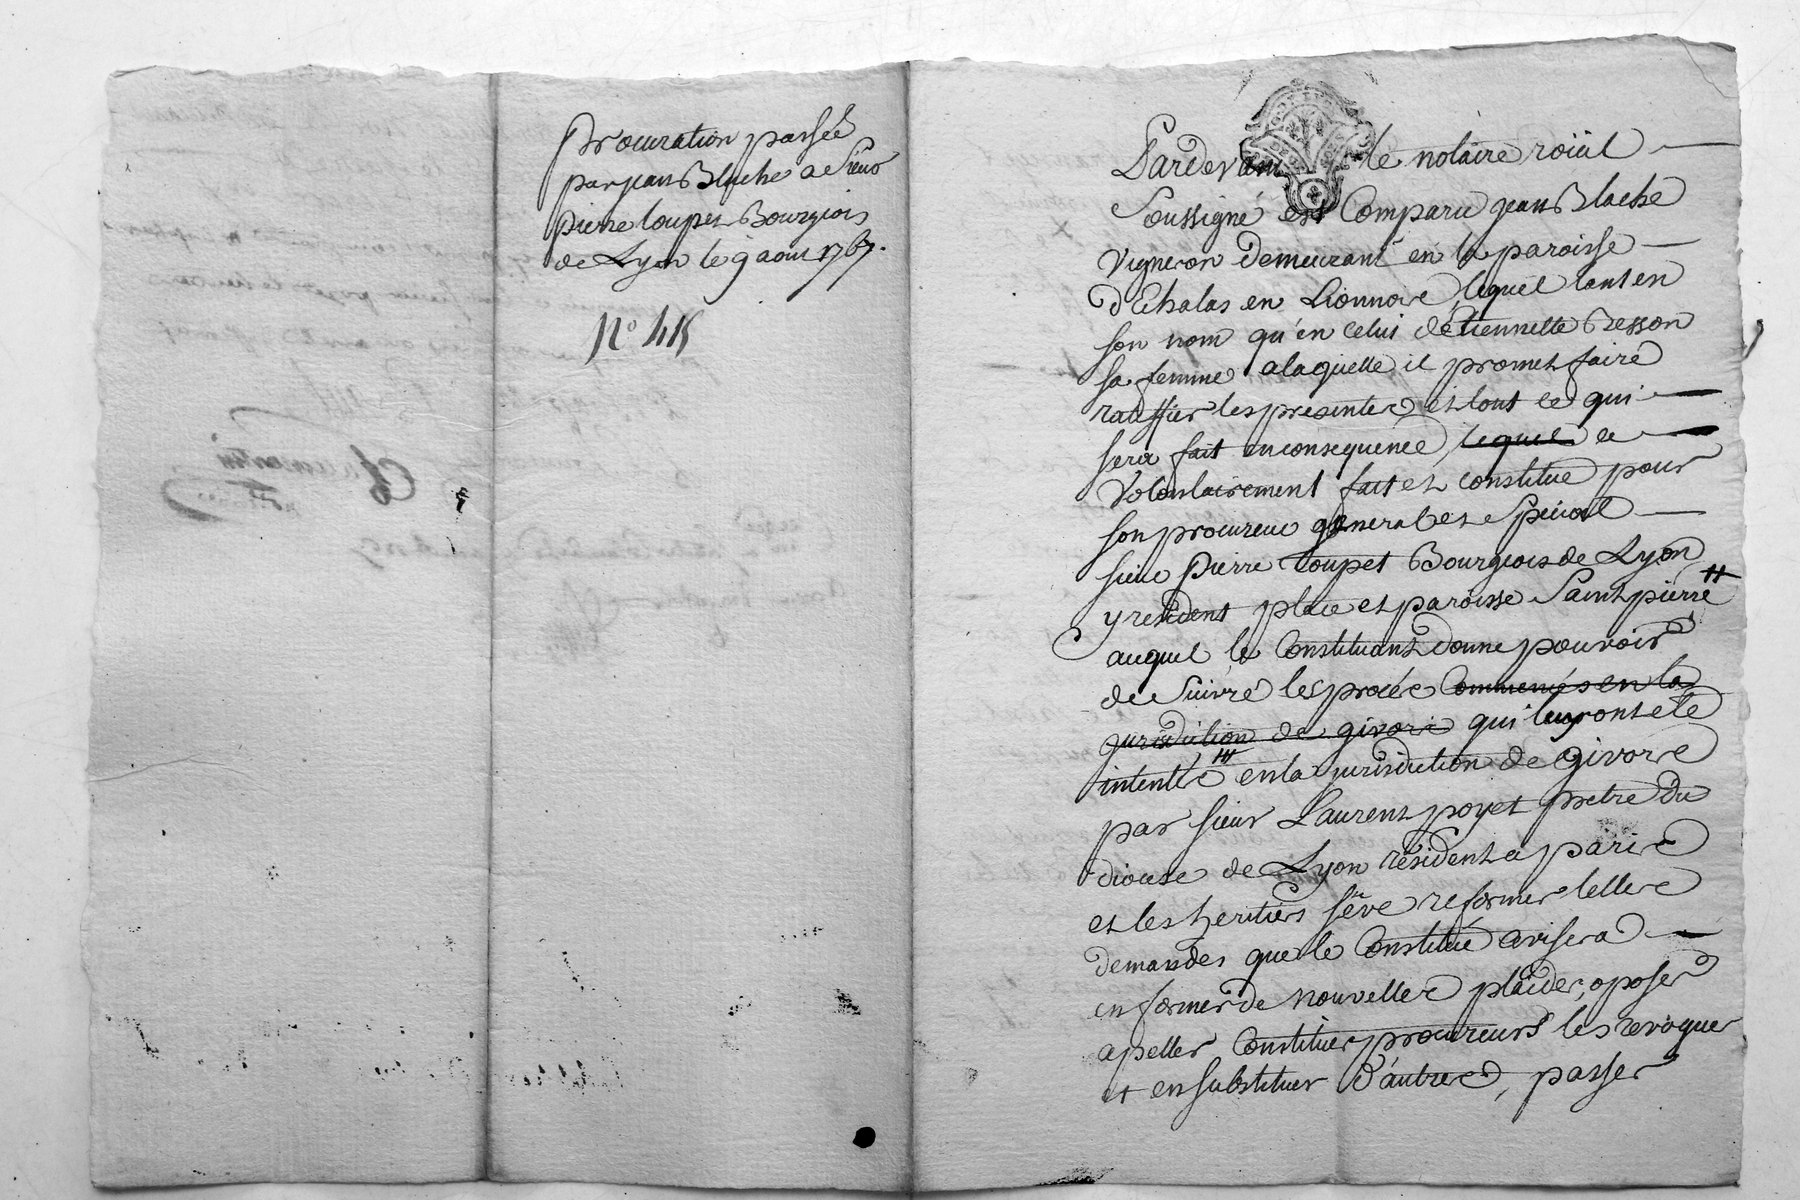 Procuration passée
par jean Blache a Sieur
Pierre loupet Bourgeois
de Lyon le 9 aout 1767.
N° 45
Pardevant le notaire roïal
Soussigné est Comparu jean Blache
Vigneron demeurant en la paroisse
d'Echalas en Lionnois, lequel tant en
son nom qu'en celui d'étiennette Besson
sa femme a laquelle il promet faire
ratiffier les presentes et tout ce qui
sera fait en consequence, lequel a
Volontairement fait et constitué pour
son procureur general et Special
sieur Pierre loupet Bourgeois de Lyon
y resident place et paroisse Saint pierre
auquel le Constituant donne pouvoir
de Suivre les procés Commencés en la
jurisdiction de givors qui luy ont été
intentés en la jurisdiction de Givors
par sieur Laurent poyet pretre du
diocese de Lyon résident a paris
et les heritiers séve reformer telles
demandes que le Constitué avisera
en former de nouvelles plaider, oposer
apeller Constituer procureurs les revoquer
et en substituer d'autres, passer